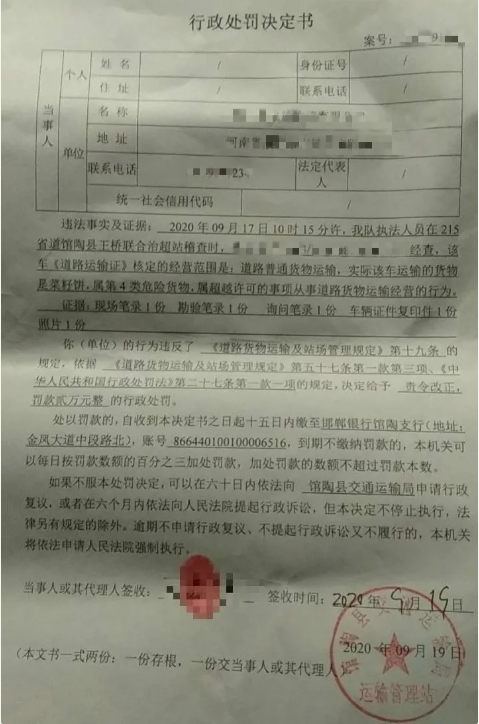 行政处罚决定书
案号: 9
当事人 个人 姓名 / 身份证号 /
住址 / 联系电话 /
单位 名称
地址 河南省
联系电话 23 法定代表人 /
统一社会信用代码 /
违法事实及证据: 2020年09月17日10时15分许,我队执法人员在215
省道馆陶县王桥联合治超站稽查时, 经查,该
车《道路运输证》核定的经营范围是:道路普通货物运输,实际该车运输的货物
是菜籽饼,属第4类危险货物,属超越许可的事项从事道路货物运输经营的行为。
证据:现场笔录1份 勘验笔录1份 询问笔录1份 车辆证件复印件1份
照片1份
你(单位)的行为违反了《道路货物运输及站场管理规定》第十九条的
规定,依据《道路货物运输及站场管理规定》第五十七条第一款第三项、《中
华人民共和国行政处罚法》第二十七条第一款一项的规定,决定给予 责令改正,
罚款贰万元整的行政处罚。
处以罚款的,自收到本决定书之日起十五日内缴至邯郸银行馆陶支行(地址:
金凤大道中段路北),账号 866440100100006516,到期不缴纳罚款的,本机关可
以每日按罚款数额的百分之三加处罚款,加处罚款的数额不超过罚款本数。
如果不服本处罚决定,可以在六十日内依法向 馆陶县交通运输局申请行政
复议,或者在六个月内依法向人民法院提起行政诉讼,但本决定不停止执行,法
律另有规定的除外。逾期不申请行政复议、不提起行政诉讼又不履行的,本机关
将依法申请人民法院强制执行。
当事人或其代理人签收: 签收时间:2020年9月19日
2020年09月19日
(本文书一式两份:一份存根,一份交当事人或其代理人)
运输管理站